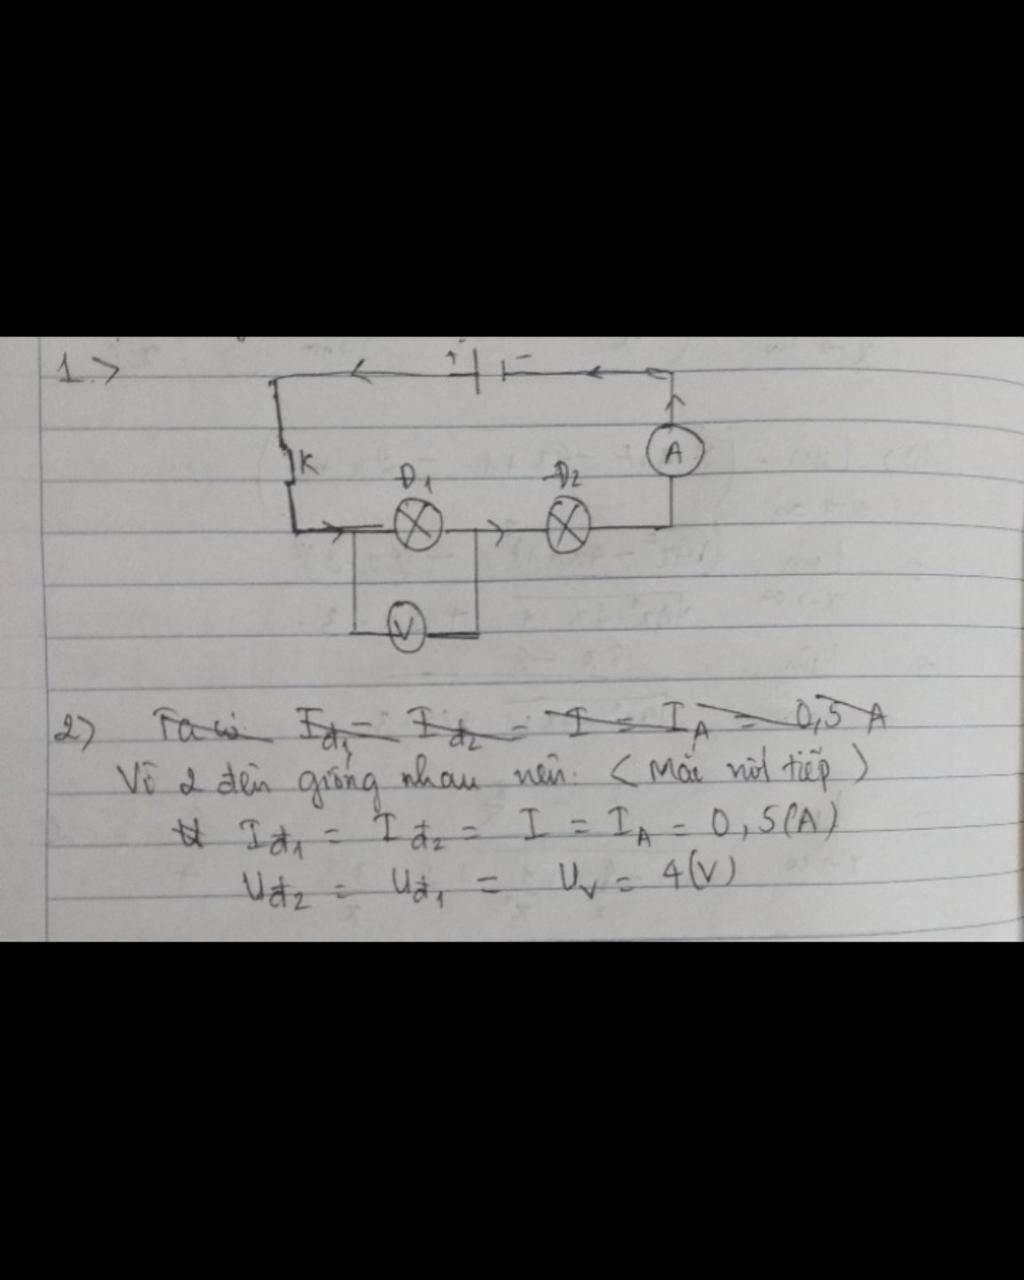 1.>
+ -
K
Đ1 Đ2
A
V
2) Ta có Iđ1 = Iđ2 = I = IA = 0,5 A
Vì 2 đèn giống nhau nên. (Mắc nối tiếp)
Iđ1 = Iđ2 = I = IA = 0,5(A)
Uđ2 = Uđ1 = UV = 4(V)